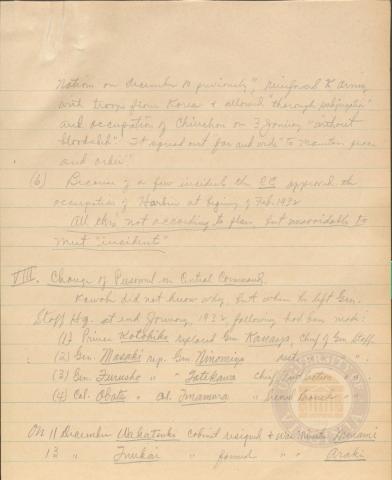 Nations on December 10 previously", reinforced K army
with troops from Korea & allowed "thorough subjugation"
and occupation of Chinchow on 3 January "without
bloodshed". It agreed not "far and wide" to maintain peace
and order."
(6) Because of a few incidents the CC approved the
occupation of Harbin at beging of Feb. 1932
All this, not according to plan, but unavoidable to
meet "incidents"
VIII. Change of Personnel on Central Command.
Kawabe did not know why, but when he left Gen.
Staff Hq. at end January, 1932 following had been made:
(1) Prince Kotohito replaced Gen Kanaya, Chief of Gen. Staff
(2) Gen. Masaki rep. Gen Ninomiya
(3) Gen. Furusho " " Tatekawa Chief
(4) Col. Obata " Col. Imamura "
On 11 December Wakatsuki cabinet resigned & War Minister Minami
13 " Inukai " formed " " Araki